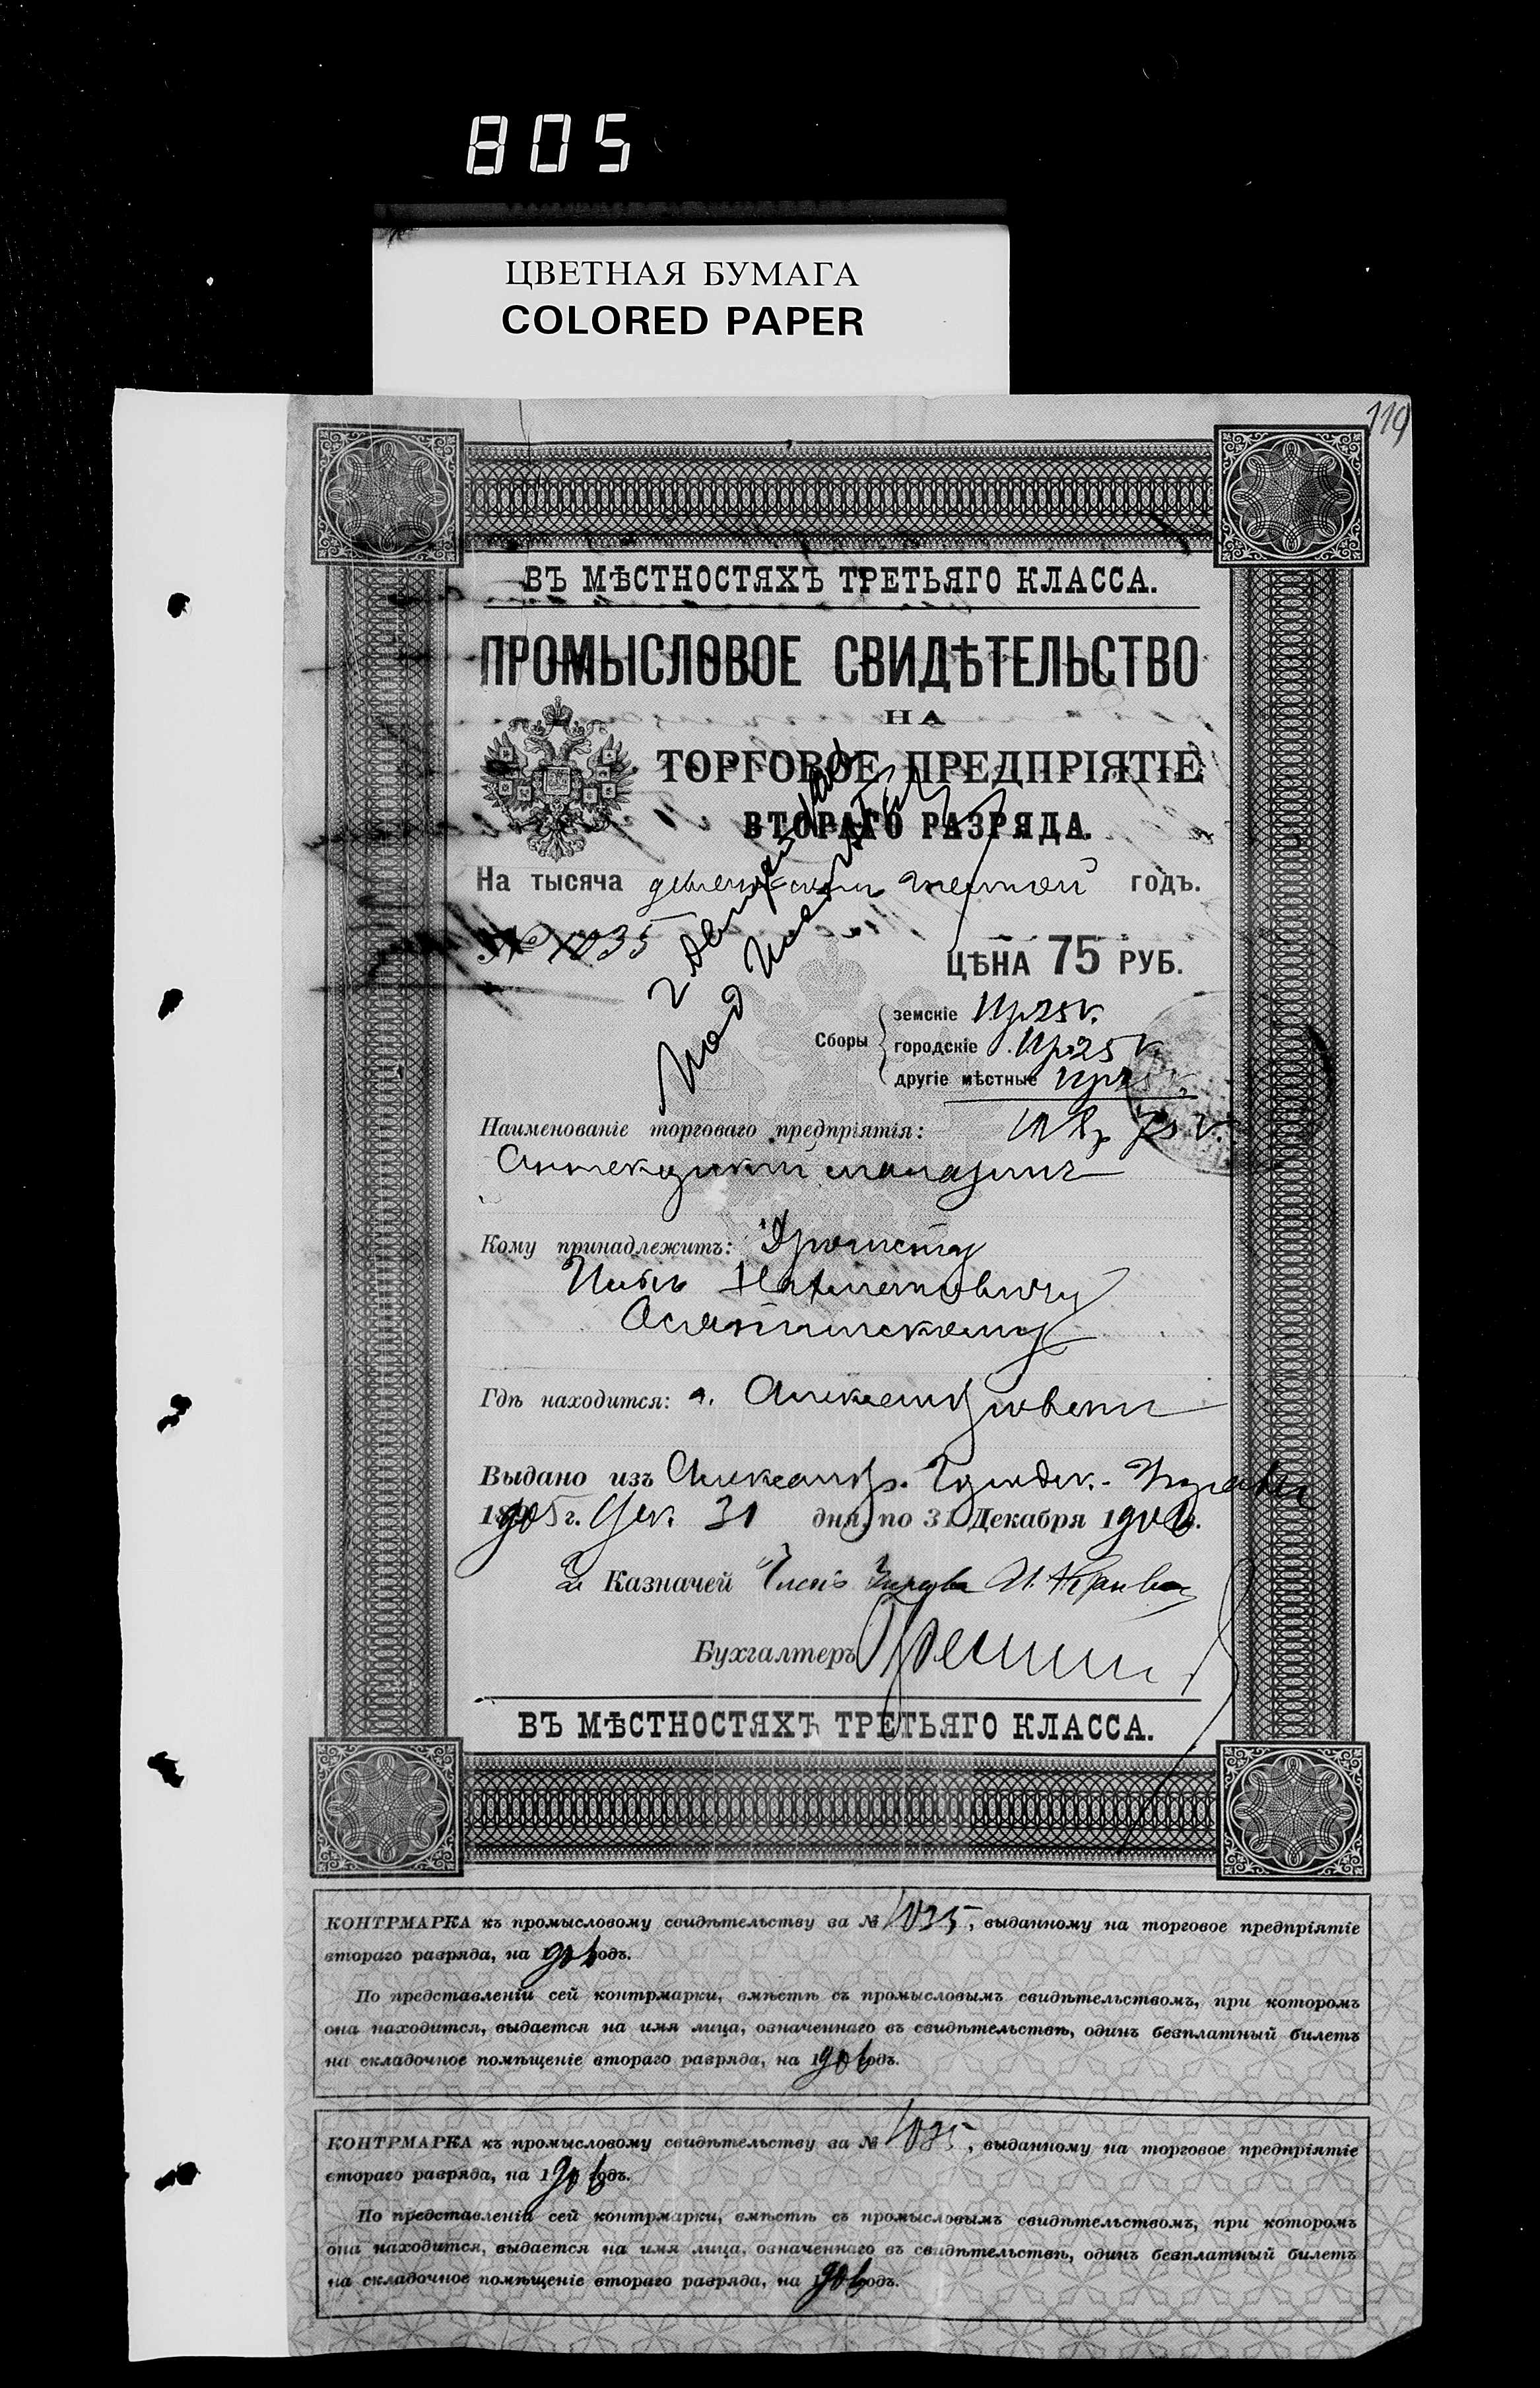 805
ЦВЕТНАЯ БУМАГА
COLORED PAPER
119
ВЪ МѢСТНОСТЯХЪ ТРЕТЬЯГО КЛАССА.
ПРОМЫСЛОВОЕ СВИДѢТЕЛЬСТВО
НА
ТОРГОВОЕ ПРЕДПРІЯТІЕ
ВТОРАГО РАЗРЯДА.
На тысяча девятьсотъ шестой годъ.
№ 1035
ЦѢНА 75 РУБ.
Сборы
земскіе 11 р 25 к.
городскіе 11 р 25 к.
другіе мѣстные
Наименованіе торговаго предпріятія:
Аптекарскій магазинъ
Кому принадлежитъ:
Гдѣ находится: г. Александровскъ
Выдано изъ Александр. Городск. Управы
1905 г. Дек. 31 дня, по 31 Декабря 1906 г.
Казначей Членъ Управы
Бухгалтеръ
ВЪ МѢСТНОСТЯХЪ ТРЕТЬЯГО КЛАССА.
КОНТРМАРКА къ промысловому свидѣтельству за № 1035, выданному на торговое предпріятіе
втораго разряда, на 1906 годъ.
По представленіи сей контрмарки, вмѣстѣ съ промысловымъ свидѣтельствомъ, при которомъ
она находится, выдается на имя лица, означеннаго въ свидѣтельствѣ, одинъ безплатный билетъ
на складочное помѣщеніе втораго разряда, на 1906 годъ.
КОНТРМАРКА къ промысловому свидѣтельству за № 1035, выданному на торговое предпріятіе
втораго разряда, на 1906 годъ.
По представленіи сей контрмарки, вмѣстѣ съ промысловымъ свидѣтельствомъ, при которомъ
она находится, выдается на имя лица, означеннаго въ свидѣтельствѣ, одинъ безплатный билетъ
на складочное помѣщеніе втораго разряда, на 1906 годъ.